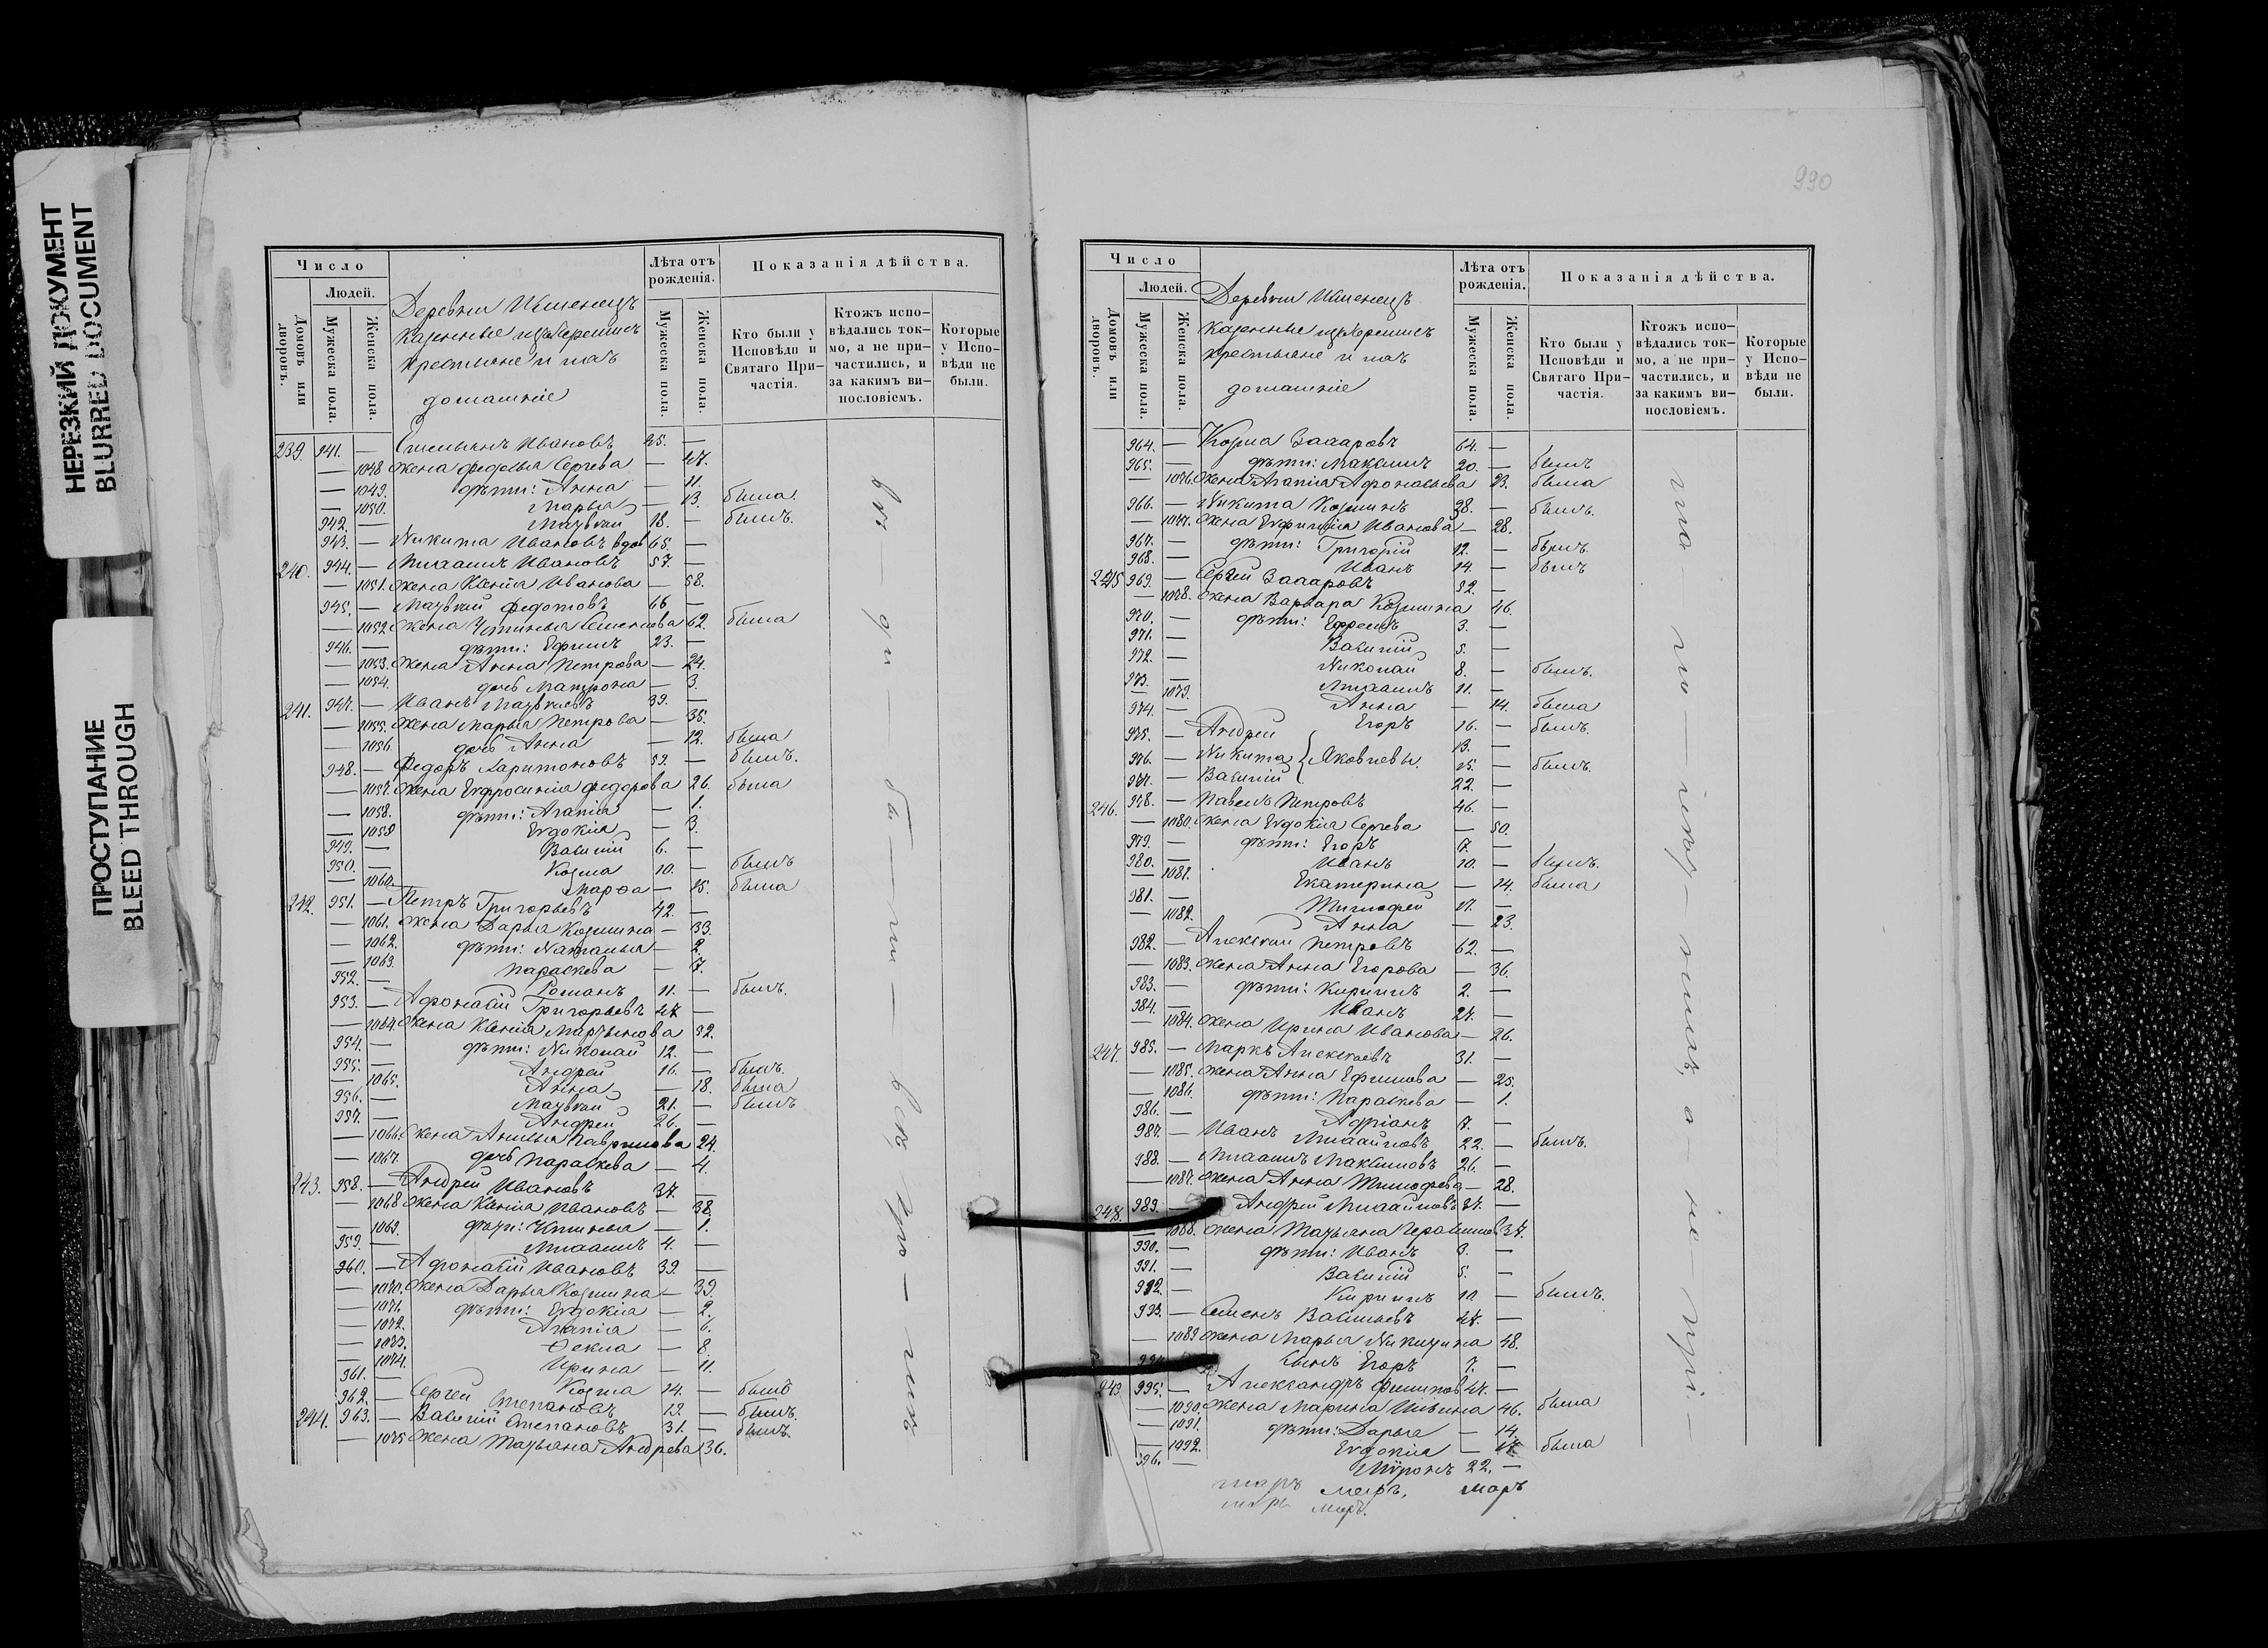 НЕРЕЗКИЙ ДОКУМЕНТ
BLURRED DOCUMENT
ПРОСТУПАНИЕ
BLEED THROUGH
Число
Людей.
Домовъ или дворовъ.
Мужеска пола.
Женска пола.
Деревни
крестьяне и ихъ
домашніе
Лѣта отъ рожденія.
Мужеска пола.
Женска пола.
Показанія дѣйства.
Кто были у Исповѣди и Святаго Причастія.
Ктожъ исповѣдались токмо, а не причастились, и за какимъ винословіемъ.
Которые у Исповѣди не были.
239. 941. — Емельянъ Ивановъ 45. —
— 1048 жена Федосья Сергѣева — 47.
— 1049. дѣти: Анна — 11.
— 1050. Марья — 13. была.
942. — Матвѣй 18. — былъ.
943. — Никита Ивановъ вдов 65. —
240. 944. — Михаилъ Ивановъ 57. —
— 1051. жена Ксенія Иванова — 58.
945. — Матвѣй Федотовъ 66 —
— 1052 жена Устинья Семенова 62. была
946. — дѣти: Ефимъ 23. —
— 1053. жена Анна Петрова — 24.
— 1054. дочь Матрона — 3.
241. 947. — Иванъ Матвѣевъ 39. —
— 1055. жена Марья Петрова — 35.
— 1056. дочь Анна — 12. была
948. — Федоръ Харитоновъ 52. — былъ.
— 1057. жена Евфросинія Федорова 26. была
— 1058. дѣти: Агапія — 1.
— 1059 Евдокія — 3.
949. — Василій 6. —
950. — Козма 10. — былъ
— 1060. Марѳа — 15. была
242. 951. — Петръ Григорьевъ 42. —
— 1061. жена Дарья Козмина — 33.
— 1062. дѣти: Наталья — 2.
— 1063. Параскева — 7.
952. — Романъ 11. — былъ.
953. — Афонасій Григорьевъ 47 —
— 1064. жена Ксенія Мартынова 52.
954. — дѣти: Николай 12. —
955. — Андрей 16. — былъ.
— 1065. Анна — 18. была
956. — Матвѣй 21. — былъ
957. — Андрей 26. —
— 1066. жена Гаврилова 24.
— 1067. дочь Параскева — 4.
243. 958. — Андрей Ивановъ 37. —
— 1068 жена Ксенія Ивановъ — 38.
— 1069. дѣти: — 1.
959. — Михаилъ 4. —
960. — Афонасій Ивановъ 39. —
— 1070. жена Дарья Козмина — 39.
— 1071. дѣти: Евдокія — 2.
— 1072. Агапія — 6.
— 1073. Ѳекла — 8.
— 1074. Ирина — 11.
961. — Козма 14. — былъ
962. — Сергей Степановъ 19. — былъ.
244. 963. — Василій Степановъ 31. — былъ.
— 1075 жена Татьяна Андрева 36.
990
Число
Людей.
Домовъ или дворовъ.
Мужеска пола.
Женска пола.
Деревни
крестьяне и ихъ
домашніе
Лѣта отъ рожденія.
Мужеска пола.
Женска пола.
Показанія дѣйства.
Кто были у Исповѣди и Святаго Причастія.
Ктожъ исповѣдались токмо, а не причастились, и за какимъ винословіемъ.
Которые у Исповѣди не были.
964. — Козма Захаровъ 64. —
965. — дѣти: Максимъ 20. — былъ
— 1076. жена Агапія Афонасьева 23. была
966. — Никита Козминъ 38. — былъ.
— 1077. жена Евфимія Иванова — 28.
967. — дѣти: Григорій 12. — былъ.
968. — Иванъ 14. — былъ
245 969. — Сергей Захаровъ 52. —
— 1078. жена Варвара Козмина 46.
970. — дѣти: Ефремъ 3. —
971. — Василій 5. —
972. — Николай 8. — былъ.
973. — Михаилъ 11. —
— 1079. Анна — 14. была
974. — Егоръ 16. — былъ.
975. — Андрей 13. —
976. — Никита } Яковлевы. 15. — былъ.
977. — Василій 22. —
246. 978. — Павелъ Петровъ 46. —
— 1080. жена Евдокія Сергева — 50.
979. — дѣти: Егоръ 7. —
980. — Иванъ 10. — былъ.
— 1081. Екатерина — 14. была
981. — Тимофей 17. —
— 1082. Анна — 23.
982. — Алексѣй Петровъ 62. —
— 1083. жена Анна Егорова — 36.
983. — дѣти: Кирилъ 2. —
984. — Иванъ 27. —
— 1084. жена Ирина Иванова — 26.
247. 985. — Маркъ Алексѣевъ 31. —
— 1085. жена Анна Ефимова — 25.
— 1086. дѣти: Параскева — 1.
986. — Адріанъ 7. —
987. — Иванъ Михайловъ 22. — былъ.
988. — Михаилъ Максимовъ 26. —
— 1087. жена Анна Тимофева — 28.
248. 989. — Андрей Михайловъ 37. —
— 1088. жена Татьяна Герасимов 37.
990. — дѣти: Иванъ 3. —
991. — Василій 5. —
992. — Кирилъ 10 — былъ.
993. — Семенъ Васильевъ 47. —
— 1089 жена Марья Никитина 48.
994. сынъ Егоръ 7. —
249 995. — Александръ Филипов 47. —
— 1090. жена Марина Ильина 46. была
— 1091. дѣти: Дарья — 14.
— 1092. Евдокія — 17. была
996. — Мѵронъ 22. —
маръ маръ, маръ
маръ маръ.